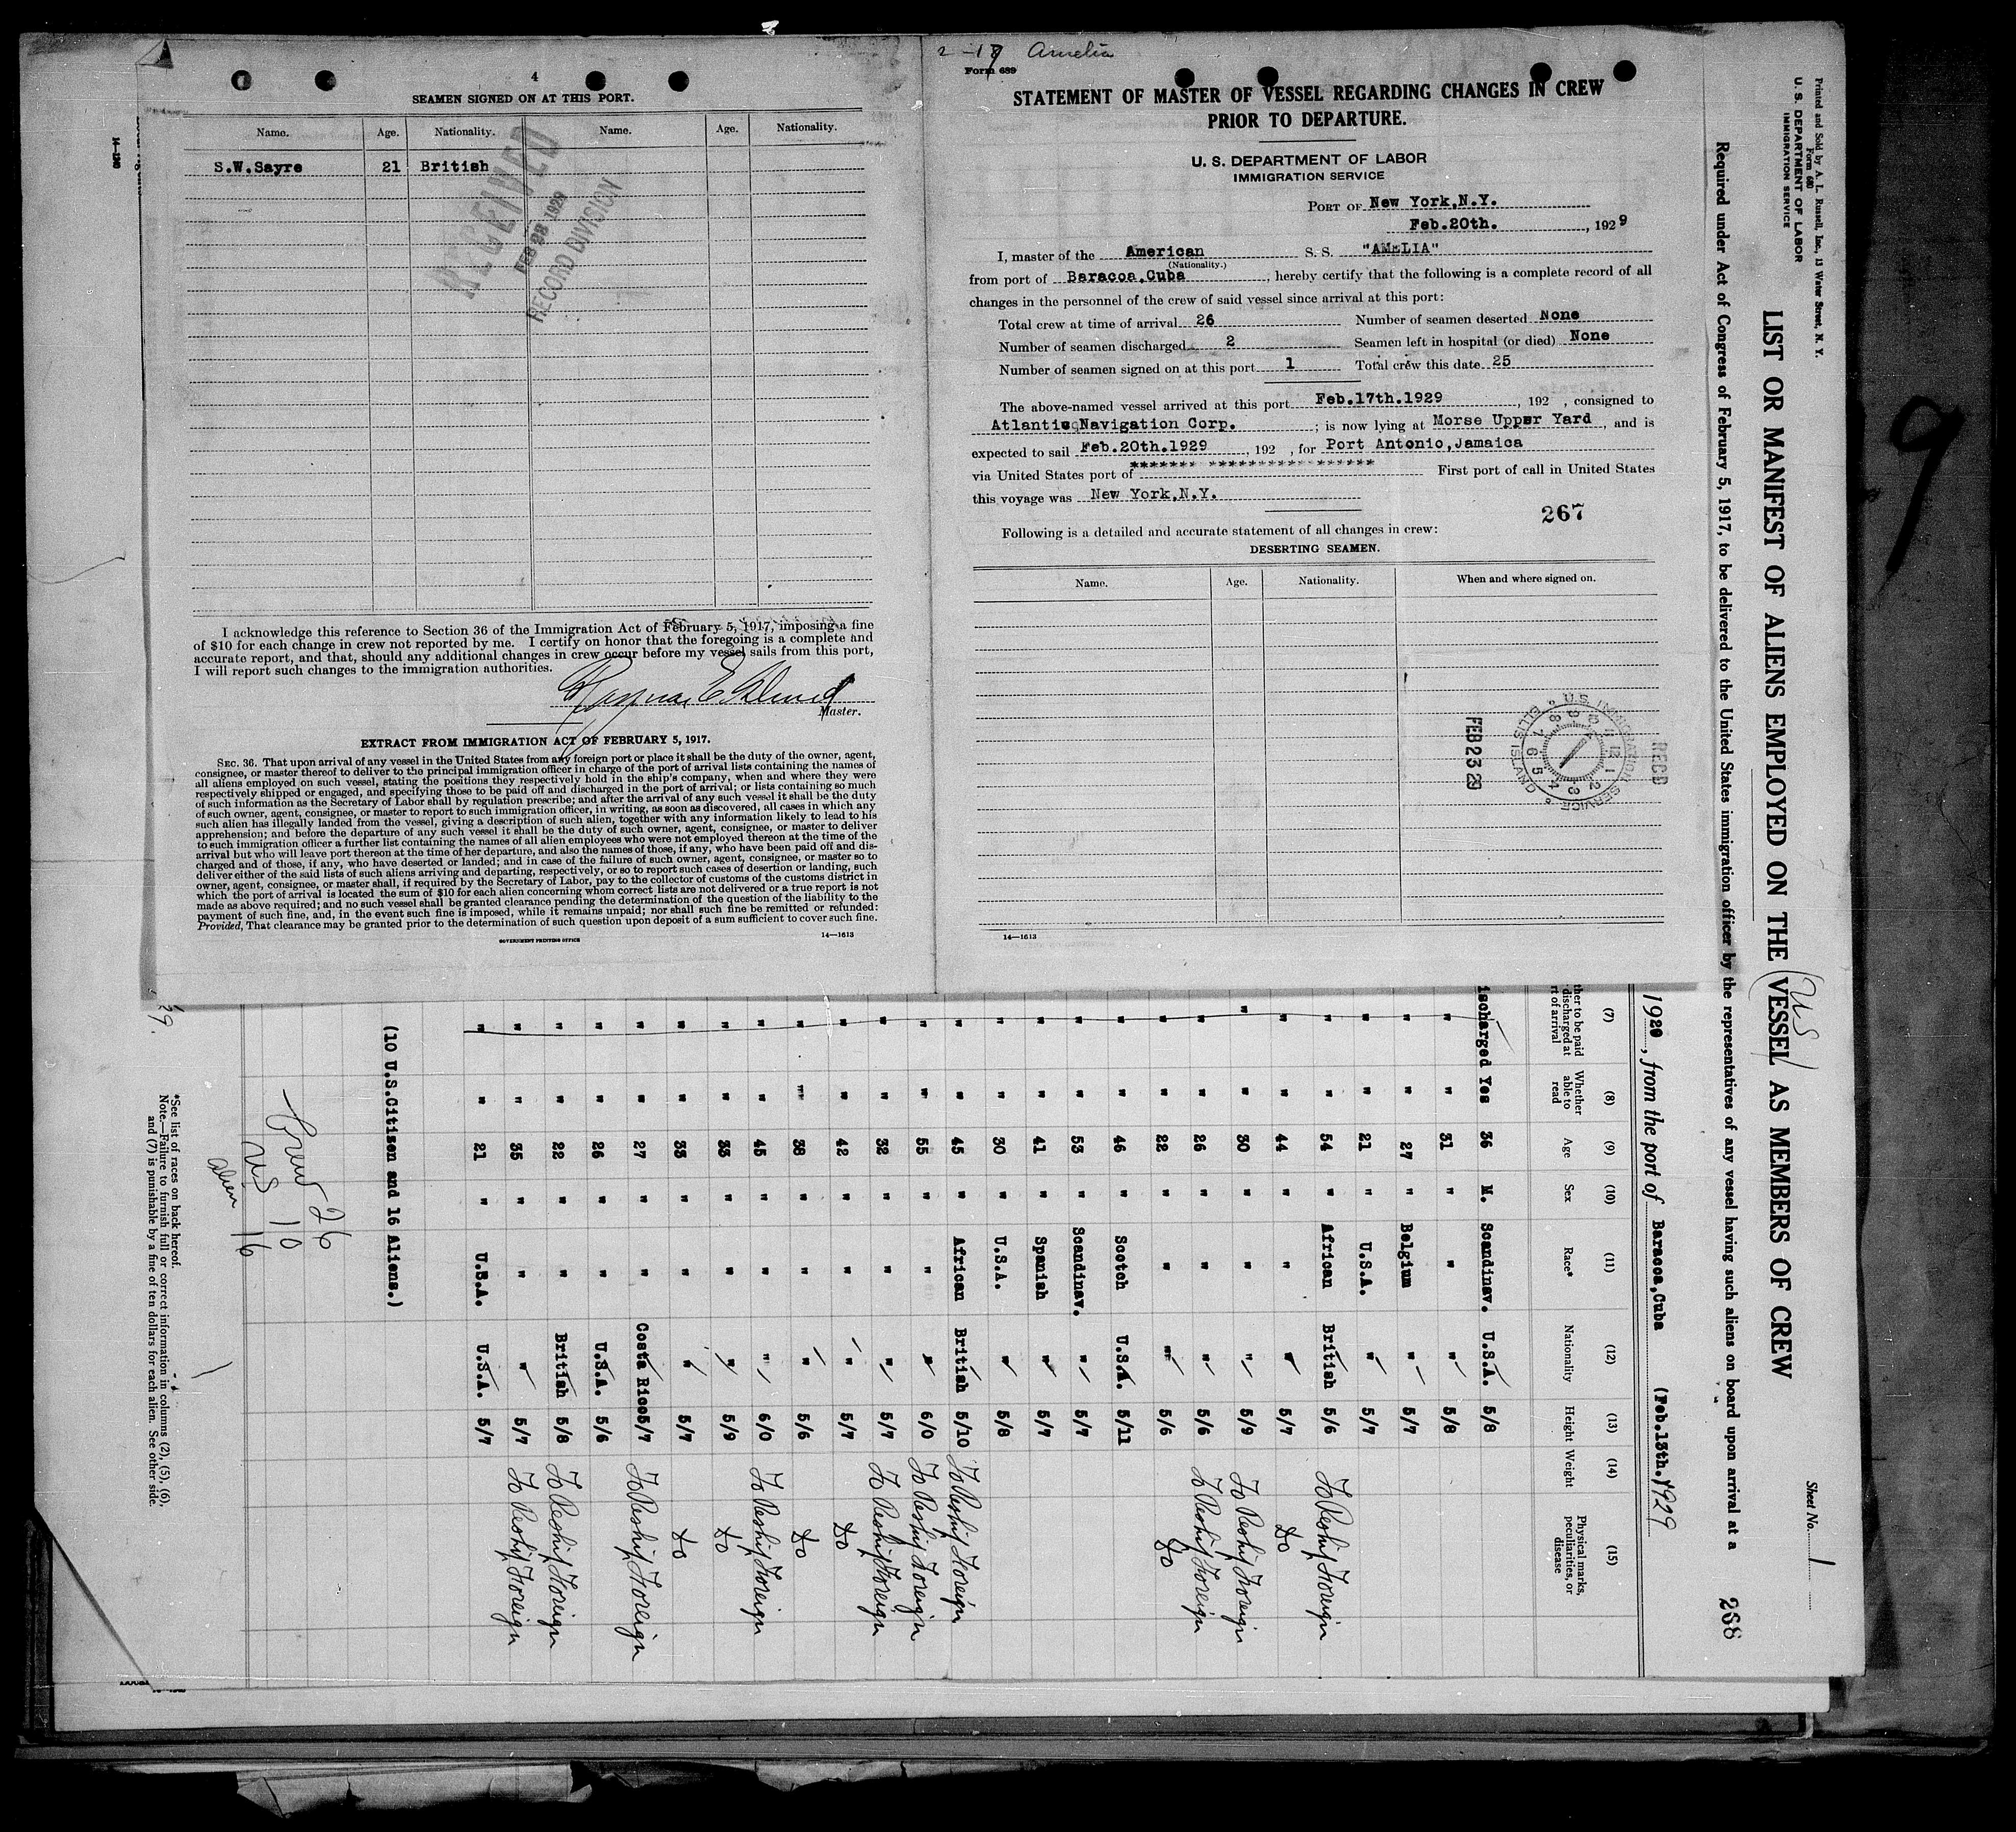 4
SEAMEN SIGNED ON AT THIS PORT.
Name. Age. Nationality. Name. Age. Nationality.
S.W.Sayre 21 British
RECEIVED
FEB 28 1929
RECORD DIVISION
I acknowledge this reference to Section 36 of the Immigration Act of February 5, 1917, imposing a fine
of $10 for each change in crew not reported by me. I certify on honor that the foregoing is a complete and
accurate report, and that, should any additional changes in crew occur before my vessel sails from this port,
I will report such changes to the immigration authorities.
Master.
EXTRACT FROM IMMIGRATION ACT OF FEBRUARY 5, 1917.
SEC. 36. That upon arrival of any vessel in the United States from any foreign port or place it shall be the duty of the owner, agent,
consignee, or master thereof to deliver to the principal immigration officer in charge of the port of arrival lists containing the names of
all aliens employed on such vessel, stating the positions they respectively hold in the ship's company, when and where they were
respectively shipped or engaged, and specifying those to be paid off and discharged in the port of arrival; or lists containing so much
of such information as the Secretary of Labor shall by regulation prescribe; and after the arrival of any such vessel it shall be the duty
of such owner, agent, consignee, or master to report to such immigration officer, in writing, as soon as discovered, all cases in which any
such alien has illegally landed from the vessel, giving a description of such alien, together with any information likely to lead to his
apprehension; and before the departure of any such vessel it shall be the duty of such owner, agent, consignee, or master to deliver
to such immigration officer a further list containing the names of all alien employees who were not employed thereon at the time of the
arrival but who will leave port thereon at the time of her departure, and also the names of those, if any, who have been paid off and dis-
charged and of those, if any, who have deserted or landed; and in case of the failure of such owner, agent, consignee, or master so to
deliver either of the said lists of such aliens arriving and departing, respectively, or so to report such cases of desertion or landing, such
owner, agent, consignee, or master shall, if required by the Secretary of Labor, pay to the collector of customs of the customs district in
which the port of arrival is located the sum of $10 for each alien concerning whom correct lists are not delivered or a true report is not
made as above required; and no such vessel shall be granted clearance pending the determination of the question of the liability to the
payment of such fine, and, in the event such fine is imposed, while it remains unpaid; nor shall such fine be remitted or refunded:
Provided, That clearance may be granted prior to the determination of such question upon deposit of a sum sufficient to cover such fine.
GOVERNMENT PRINTING OFFICE
14—1613
2-17 Amelia
Form 689
STATEMENT OF MASTER OF VESSEL REGARDING CHANGES IN CREW
PRIOR TO DEPARTURE.
U. S. DEPARTMENT OF LABOR
IMMIGRATION SERVICE
PORT OF New York,N.Y.
Feb.20th. , 1929
I, master of the American S. S. "AMELIA"
(Nationality.)
from port of Baracoa,Cuba , hereby certify that the following is a complete record of all
changes in the personnel of the crew of said vessel since arrival at this port:
Total crew at time of arrival 26 Number of seamen deserted None
Number of seamen discharged 2 Seamen left in hospital (or died) None
Number of seamen signed on at this port 1 Total crew this date 25
The above-named vessel arrived at this port Feb.17th.1929 , 192 , consigned to
Atlantic Navigation Corp. ; is now lying at Morse Upper Yard , and is
expected to sail Feb.20th.1929 , 192 , for Port Antonio,Jamaica
via United States port of ******* ******************* First port of call in United States
this voyage was New York,N.Y.
267
Following is a detailed and accurate statement of all changes in crew:
DESERTING SEAMEN.
Name. Age. Nationality. When and where signed on.
REC'D
U.S. IMMIGRATION SERVICE
ELLIS ISLAND
FEB 23 29
14—1613
Printed and Sold by A. L. Russell, Inc., 13 Water Street, N. Y.
Form 680
U. S. DEPARTMENT OF LABOR
IMMIGRATION SERVICE
Sheet No. 1
US
LIST OR MANIFEST OF ALIENS EMPLOYED ON THE VESSEL AS MEMBERS OF CREW
Required under Act of Congress of February 5, 1917, to be delivered to the United States immigration officer by the representatives of any vessel having such aliens on board upon arrival at a
268
1929, from the port of Baracoa,Cuba (Feb.13th. 1929
(7) (8) (9) (10) (11) (12) (13) (14) (15)
ther to be paid discharged at rt of arrival Whether able to read Age Sex Race* Nationality Height Weight Physical marks, peculiarities, or disease
ischarged Yes 36 M. Scandinav. U.S.A. 5/8
" " 31 " " " 5/8
" " 27 " Belgium " 5/7
" " 21 " U.S.A. " 5/7
" " 54 " African British 5/6 To Reship Foreign
" " 44 " " " 5/7 do
" " 30 " " " 5/9 To Reship Foreign
" " 26 " " " 5/6 To Reship Foreign
" " 22 " " " 5/6 do
" " 46 " Scotch U.S.A. 5/11
" " 53 " Scandinav. " 5/7
" " 41 " Spanish " 5/7
" " 30 " U.S.A. " 5/8
" " 45 " African British 5/10 To Reship Foreign
" " 55 " " " 6/0 To Reship Foreign
" " 32 " " " 5/7 To Reship Foreign
" " 42 " " " 5/7 do
" " 38 " " " 5/6 do
" " 45 " " " 6/0 To Reship Foreign
" " 33 " " " 5/9 do
" " 33 " " " 5/7 do
" " 27 " " Costa Rico 5/7 To Reship Foreign
" " 26 " " U.S.A. 5/6
" " 22 " " British 5/8 To Reship Foreign
" " 35 " " " 5/7 To Reship Foreign
" " 21 " U.S.A. U.S.A. 5/7
(10 U.S.Citizen and 16 Aliens.)
Crew 26
US 10
alien 16
*See list of races on back hereof.
Note.—Failure to furnish full or correct information in columns (2), (5), (6),
and (7) is punishable by a fine of ten dollars for each alien. See other side.
14—1240
9